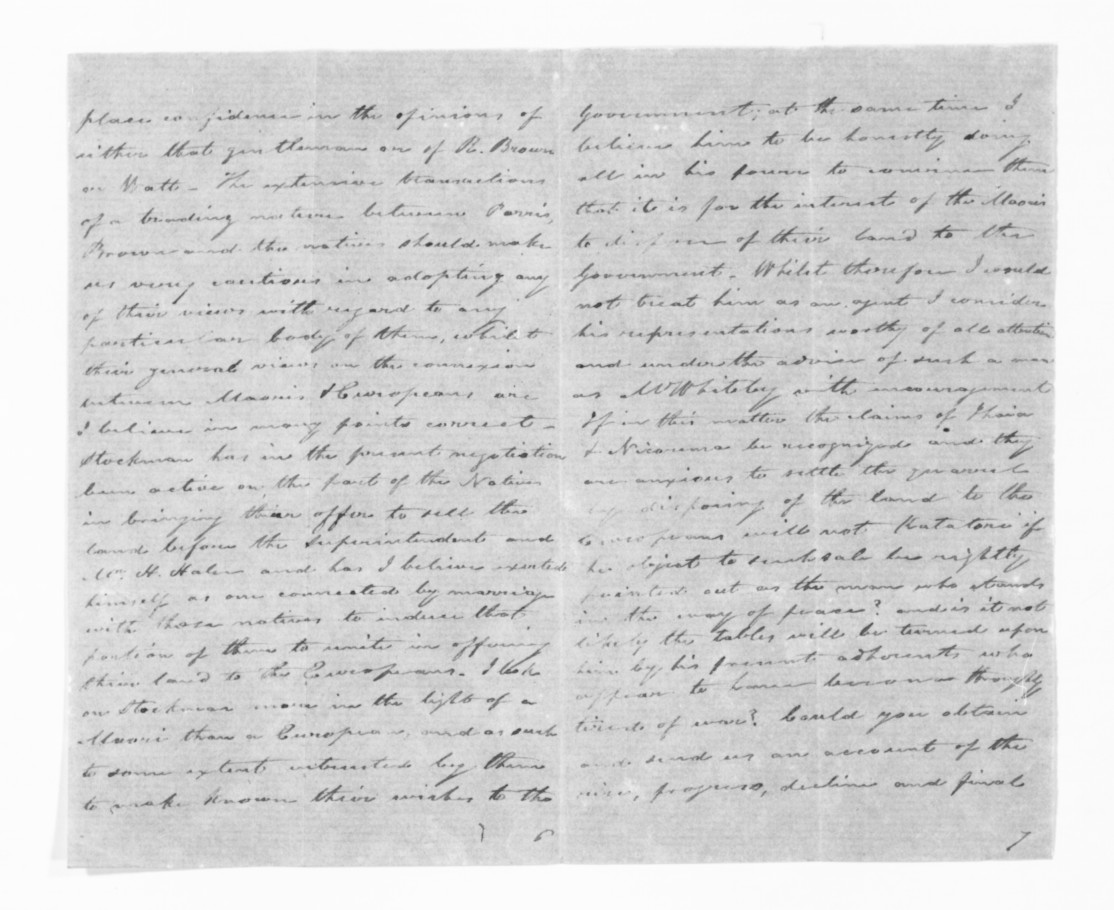 place confidence in the opinions of
either that gentleman or of R. Brown
or Watt - The extensive transactions
of a trading nature between Parris,
Brown and the natives should make
us very cautious in adopting any
of their views with regard to any
particular body of them, whilst
their general views on the connexion
between Maoris & Europeans are
I believe in many points correct -
Stockman has in the present negotiation
been active on the part of the Natives
in bringing their offer to sell the
land before the Superintendent and
Mr. H. Halse and has I believe exerted
himself as one connected by marriage
with those natives to induce that
portion of them to unite in offering
their land to the Europeans. I look
on Stockman more in the light of a
Maori than a European, and as such
to some extent intrusted by them
to make known their wishes to the
6
Government; at the same time I
believe him to be honestly doing
all in his power to convince them
that it is for the interest of the Maoris
to dispose of their land to the
Government. Whilst therefore I would
not treat him as an agent I consider
his representations worthy of all attention
and under the advice of such a man
as Mr Whiteley with encouragement
If in this matter the claims of Ihaia
& Nicorima be recognized and they
are anxious to settle the quarrel
by disposing of the land to the
Europeans will not Katatore if
he object to such sale be rightly
pointed out as the man who stands
in the way of peace? and is it not
likely the tables will be turned upon
him by his present adherents who
appear to have become thoroughly
tired of war? Could you obtain
and send us an account of the
rise, progress, decline and final
7